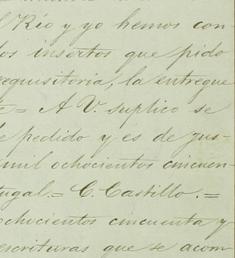 l Rio y yo hemos con-
los insertos que pido
equisitoria, la entregue
A V. suplico se
pedido y es de jus-
mil ochocientos cincuen-
tugal.= C. Castillo.=
ochocientos cincuenta y
escrituras que se acom